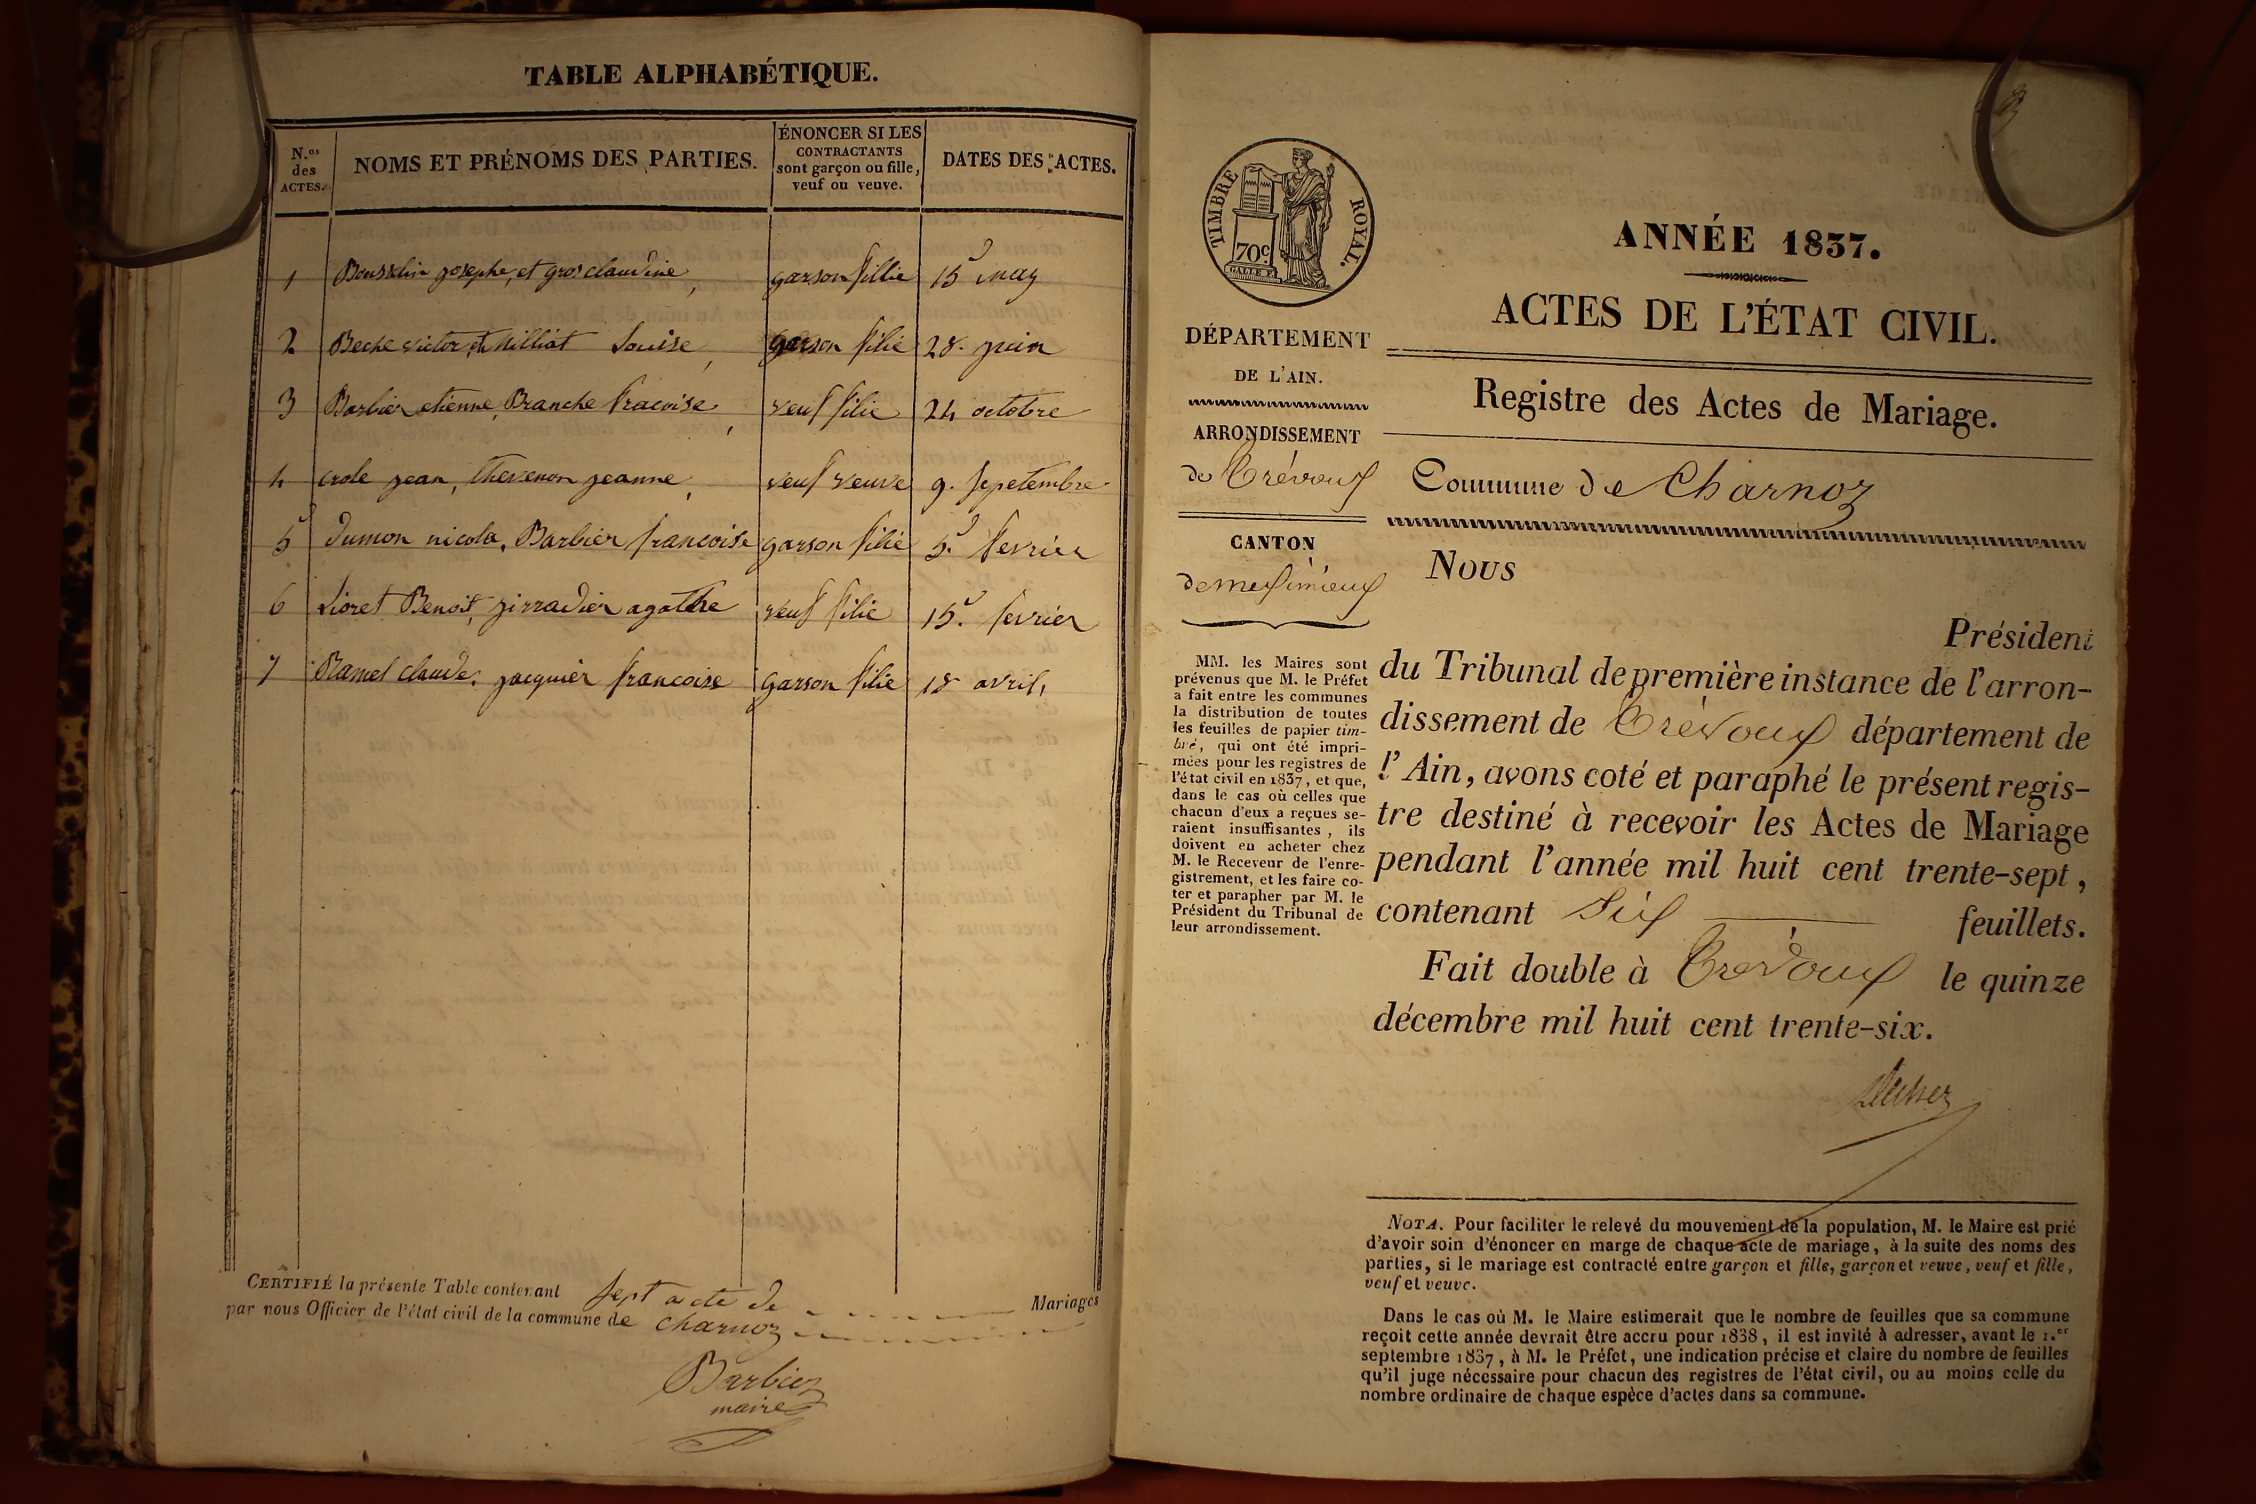 TABLE ALPHABÉTIQUE.
N.os des ACTES.
NOMS ET PRÉNOMS DES PARTIES.
ÉNONCER SI LES CONTRACTANTS sont garçon ou fille, veuf ou veuve.
DATES DES ACTES.
1 josephe, et gros claudine, garson fillie 15 may
2 Beche victor, et Milliat Louise, garson filie 28. juin
3 Barbier etienne, Branche fracoise, veuf filie 24 octobre
4 crole jean, thevenon jeanne, veuf veuve 9. sepetembre
5 dumon nicola, Barbier francoise garson filie 5. fevrier
6 Lioret Benoit, girradier agathe veuf filie 15. fevrier
7 Ramel claude. jacquier francoise garson filie 18 avril,
CERTIFIÉ la présente Table contenant sept acte de Mariages
par nous Officier de l'état civil de la commune de charnoz
Barbier
maire
TIMBRE ROYAL.
70c
ANNÉE 1837.
ACTES DE L'ÉTAT CIVIL.
Registre des Actes de Mariage.
Commune de Charnoz
DÉPARTEMENT
DE L'AIN.
ARRONDISSEMENT
de Trévoux
CANTON
de meximieux
MM. les Maires sont
prévenus que M. le Préfet
a fait entre les communes
la distribution de toutes
les feuilles de papier tim-
bré, qui ont été impri-
mées pour les registres de
l'état civil en 1837, et que,
dans le cas où celles que
chacun d'eux a reçues se-
raient insuffisantes, ils
doivent en acheter chez
M. le Receveur de l'enre-
gistrement, et les faire co-
ter et parapher par M. le
Président du Tribunal de
leur arrondissement.
Nous
Président
du Tribunal de première instance de l'arron-
dissement de Trévoux département de
l'Ain, avons coté et paraphé le présent regis-
tre destiné à recevoir les Actes de Mariage
pendant l'année mil huit cent trente-sept,
contenant Six feuillets.
Fait double à Trévoux le quinze
décembre mil huit cent trente-six.
NOTA. Pour faciliter le relevé du mouvement de la population, M. le Maire est prié
d'avoir soin d'énoncer en marge de chaque acte de mariage, à la suite des noms des
parties, si le mariage est contracté entre garçon et fille, garçon et veuve, veuf et fille,
veuf et veuve.
Dans le cas où M. le Maire estimerait que le nombre de feuilles que sa commune
reçoit cette année devrait être accru pour 1838, il est invité à adresser, avant le 1.er
septembre 1837, à M. le Préfet, une indication précise et claire du nombre de feuilles
qu'il juge nécessaire pour chacun des registres de l'état civil, ou au moins celle du
nombre ordinaire de chaque espèce d'actes dans sa commune.